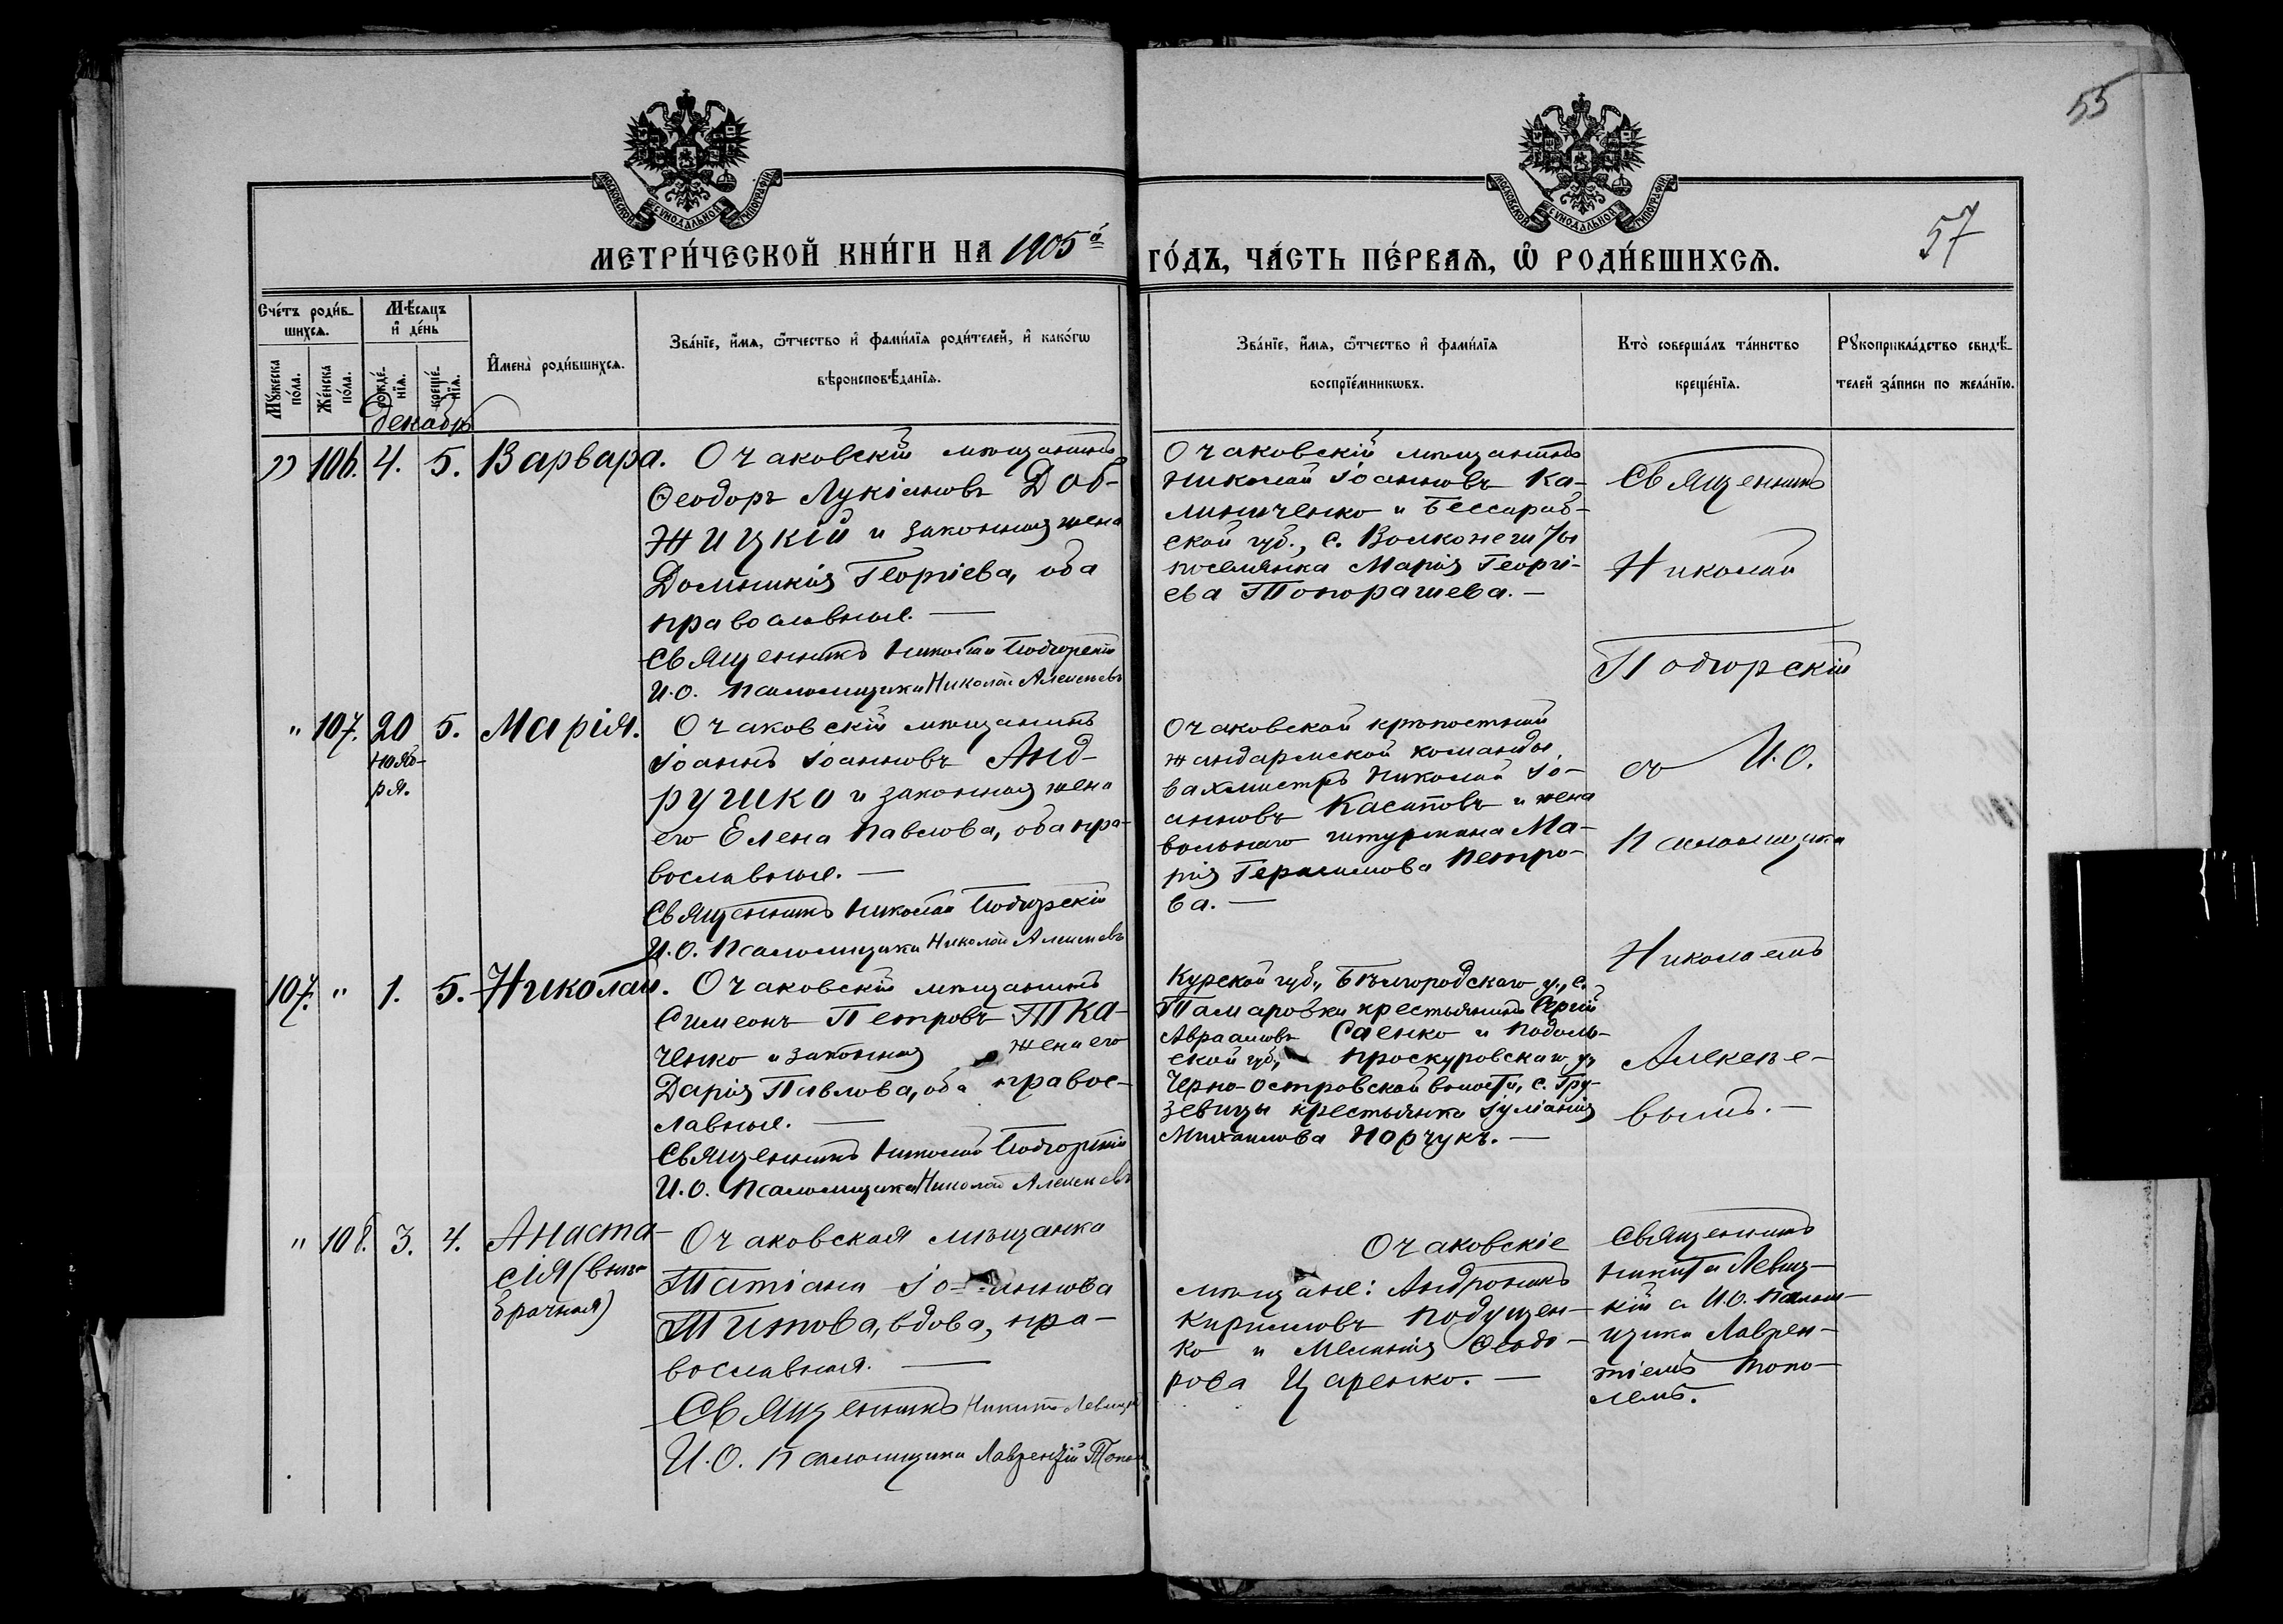 55
57
МОСКОВСКОЙ СѴНОДАЛЬНОЙ ТИПОГРАФІИ
МОСКОВСКОЙ СѴНОДАЛЬНОЙ ТИПОГРАФІИ
МЕТРИ́ЧЕСКОЙ КНИ́ГИ НА 1905й ГО́ДЪ, ЧА́СТЬ ПЕ́РВАѦ, Ѡ҆ РОДИ́ВШИХСѦ.
Сче́тъ роди́в-
шихсѧ.
Мꙋ́жеска
по́ла.
Же́нска
по́ла.
Мѣ́сѧцъ
и҆ де́нь
рожде́-
нїѧ.
креще́-
нїѧ.
И҆мена̀ роди́вшихсѧ.
Зва́нїе, и҆́мѧ, ѻ҆́тчество и҆ фами́лїѧ роди́телей, и҆ како́гѡ
вѣроисповѣ́данїѧ.
Зва́нїе, и҆́мѧ, ѻ҆́тчество и҆ фами́лїѧ
воспрїе́мникѡвъ.
Кто̀ соверша́лъ та́инство
креще́нїѧ.
Рꙋкоприкла́дство свидѣ́-
телей за́писи по жела́нїю.
Декабрь
" 106. 4. 5. Варвара.
Очаковскій мѣщанинъ
Ѳеодоръ Лукіановъ Доб-
жицкій и законная жена
Домникія Георгіева, оба
православные. —
Священникъ Николай Подгорскій
И.О. Псаломщика Николай Алексѣевъ
Очаковскій мѣщанинъ
Николай Іоанновъ Ка-
линиченко и Бессараб-
ской губ., с.
поселянка Марія Георгі-
ева Топорашева. —
Священникъ
Николай
Подгорскій
" 107. 20 5. Марія.
нояб-
ря.
Очаковскій мѣщанинъ
Іоаннъ Іоанновъ Анд-
рушко и законная жена
его Елена Павлова, оба пра-
вославные. —
Священникъ Николай Подгорскій
И.О. Псаломщика Николай Алексѣевъ
Очаковской крѣпостной
жандармской команды
вахмистръ Николай Іо-
анновъ Касаповъ и жена
вольнаго штурмана Ма-
рія Герасимова Петро-
ва. —
съ И.О.
Псаломщика
Николаемъ
107. " 1. 5. Николай.
Очаковскій мѣщанинъ
Симеонъ Петровъ Тка-
ченко и законная жена его
Дарія Павлова, оба правос-
лавные. —
Священникъ Николай Подгорскій
И.О. Псаломщика Николай Алексѣевъ
Курской губ., Бѣлгородскаго у., с.
Тамаровки крестьянинъ Сергій
Авраамовъ Саенко и Подоль-
ской губ., Проскуровскаго у,
Черно-Островской волости, с. Гру-
зевицы крестьянка Іуліанія
Михаилова Норчукъ. —
Алексѣе-
вымъ. —
" 108. 3. 4. Анаста-
сія (внѣ-
брачная)
Очаковская мѣщанка
Татіана Іоаннова
Титова, вдова, пра-
вославная. —
Священникъ Никита Левицкій
И.О. Псаломщика Лаврентій Топол
Очаковскіе
мѣщане: Андроникъ
Кирилловъ Подущен-
ко и Меланія Ѳеодо-
рова Царенко. —
Священникъ
Никита Левиц-
кій съ И.О. Псалом-
щика Лаврен-
тіемъ Топо-
лемъ.